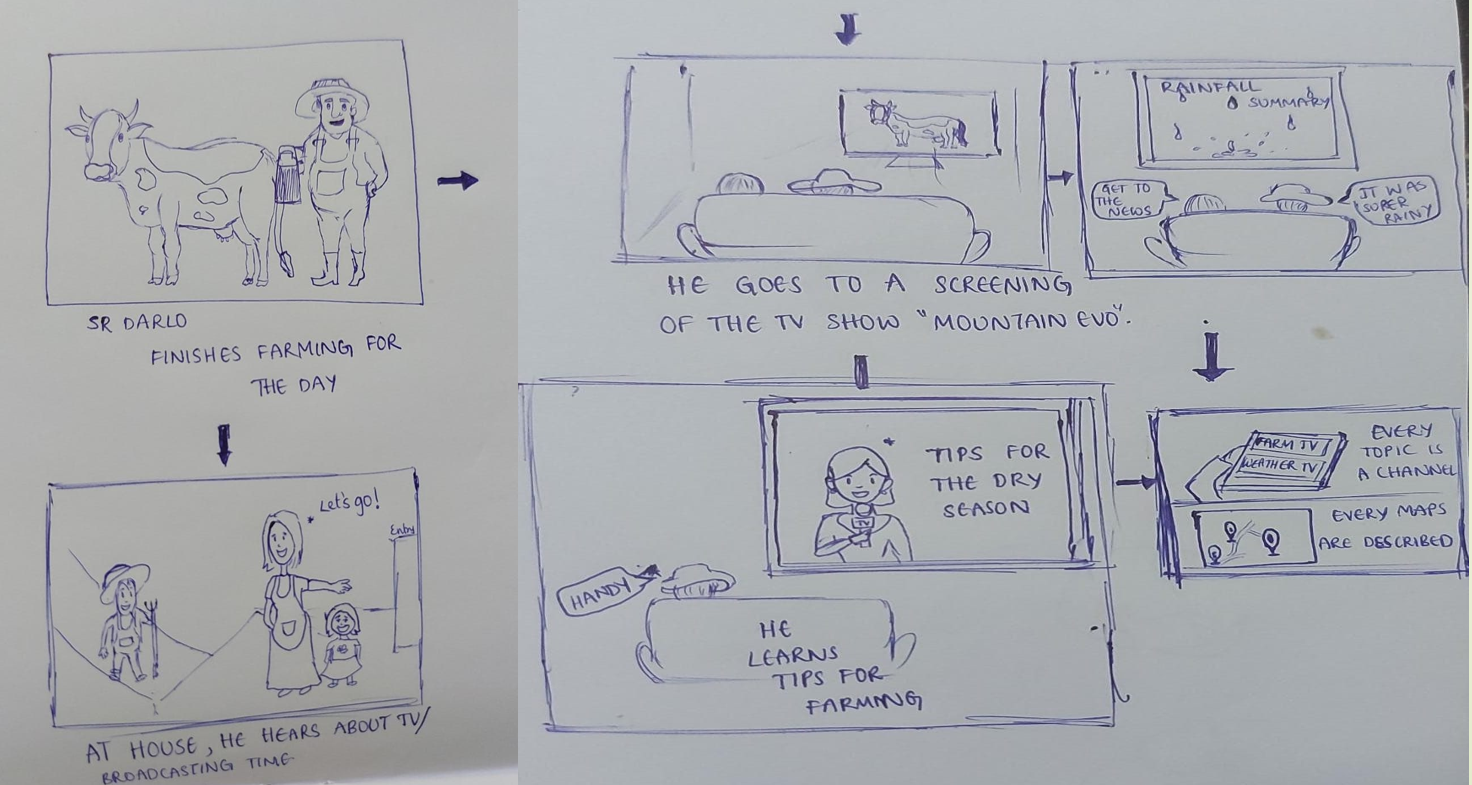 SR DARLO
FINISHES FARMING FOR
THE DAY
Let's go!
Entry
AT HOUSE, HE HEARS ABOUT TV/
BROADCASTING TIME
HE GOES TO A SCREENING
OF THE TV SHOW "MOUNTAIN EVO".
RAINFALL
SUMMARY
GET TO
THE
NEWS
IT WAS
SUPER
RAINY
TIPS FOR
THE DRY
SEASON
TV
HANDY
HE
LEARNS
TIPS FOR
FARMING
FARM TV
WEATHER TV
EVERY
TOPIC IS
A CHANNEL
EVERY MAPS
ARE DESCRIBED